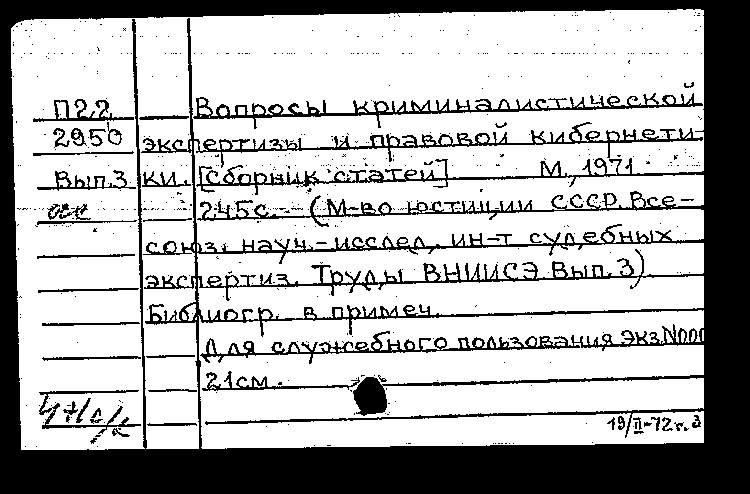 П2.2 Вопросы криминалистической
2950 экспертизы и правовой кибернети-
Вып.3 ки. [Сборник статей] М., 1971.
245с. — (М-во юстиции СССР. Все-
союз. науч.-исслед. ин-т судебных
экспертиз. Труды ВНИИСЭ Вып. 3)
Библиогр. в примеч.
Для служебного пользования Экз.N000
21см.
19/II-72г.